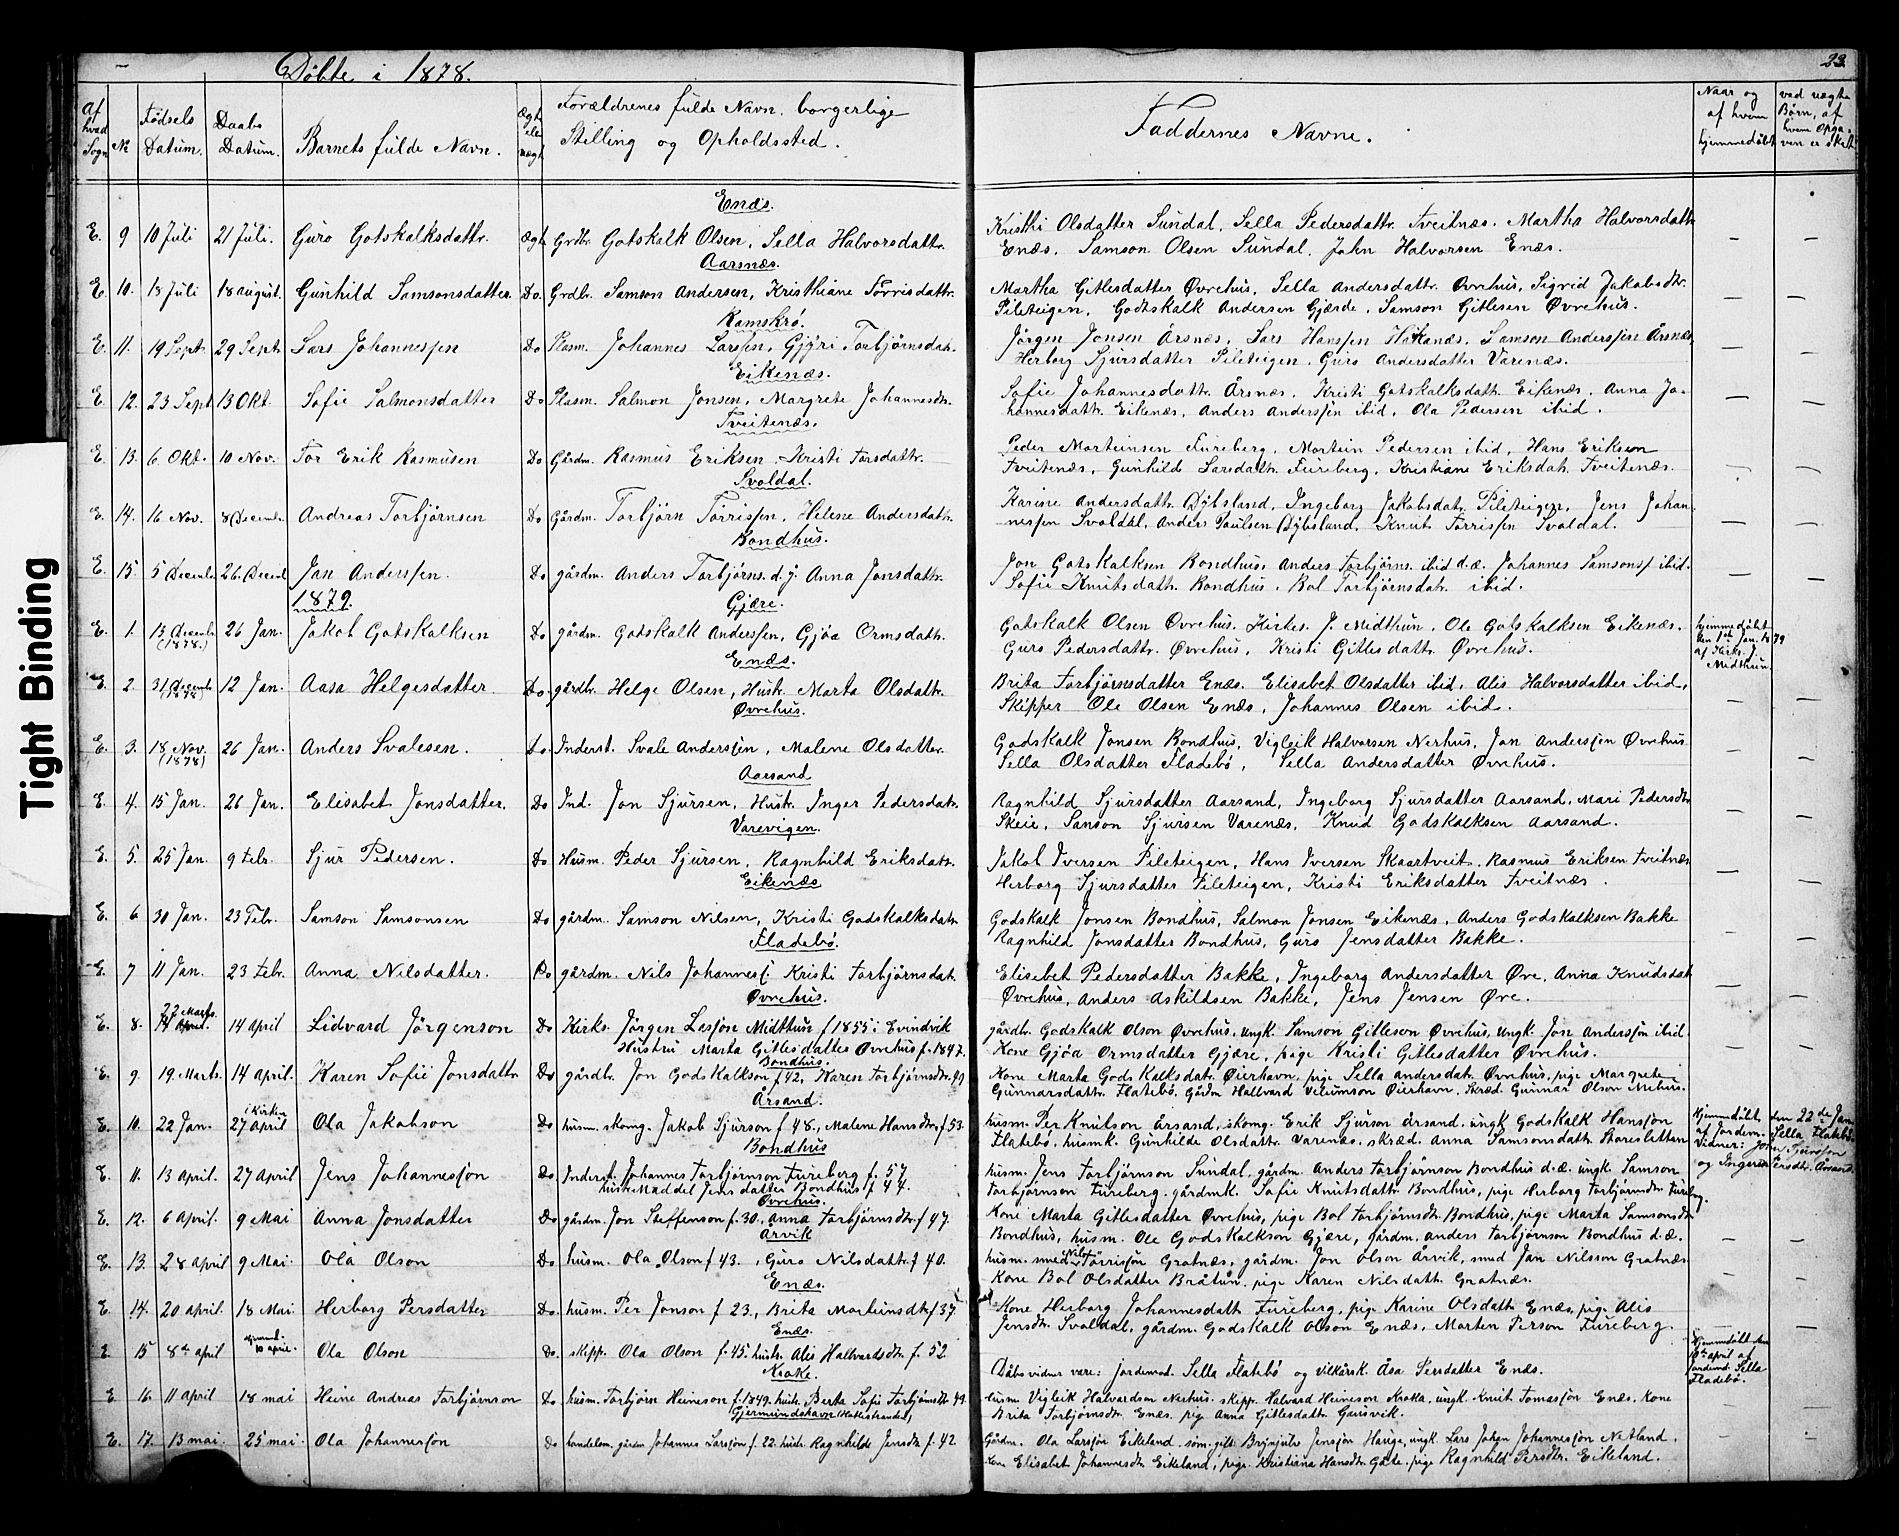 Döbte i 1878.
23.
Af hvad Sogn
№
Fødsels Datum.
Daabs Datum.
Barnets fulde Navn.
Ægt. ell. uægt.
Forældrenes fulde Navn, borgerlige
Stilling og Opholdssted.
Faddernes Navne.
Naar og af hvem hjemmedöbt
ved uægte Børn, af hvem Opgaven er skeet
Enæs.
E. 9 10 Juli 21 Juli. Guro Gotskalksdattr. Ægt. Grdbr. Gotskalk Olsen, Sella Halvorsdattr.
Kristhi Olsdatter Sundal, Sella Pedersdattr. Tveitnæs. Martha Halvorsdattr
Enæs. Samson Olsen Sundal, John Halvorsen Enæs.
Aarsnæs.
E. 10. 18 Juli 18 august. Gunhild Samsonsdatter. Do. Grdbr. Samson Andersen, Kristhiane Törrisdattr.
Martha Gitlesdatter Øvrehus, Sella Andersdattr. Øvrehus, Sigrid Jakobsdtr.
Pileteigen, Godskalk Andersen Gjærde, Samson Gitlesen Øvrehus.
Kamskrø.
E. 11. 19 Sept. 29 Sept. Lars Johannessen Do Plasm. Johannes Larssen, Gjøri Torbjørnsdatr.
Jörgen Jonsen Årsnæs, Lars Hanssen Håkanæs, Samson Anderssen Årsnæs,
Herborg Sjursdatter Pileteigen, Guro Andersdatter Varenæs.
Eikenæs.
E. 12. 23 Sept 13 Okt. Sofie Salmonsdatter Do Plasm. Salmon Jonsen, Margrete Johannesdtr.
Sofie Johannesdattr. Årsnæs, Kristi Gotskalksdattr. Eikenæs, Anna Jo-
hannesdattr. Eikenæs, Anders Anderssen ibid, Ola Pedersen ibid.
Tveitenæs.
E. 13. 6 Okt. 10 Nov. Tor Erik Rasmusen Do Gårdm. Rasmus Eriksen, Kristi Torsdattr.
Peder Morteinsen Fureberg, Mortein Pedersen ibid, Hans Eriksen
Tveitenæs, Gunhild Larsdattr. Fureberg, Kristiane Eriksdat. Tveitenæs.
Svoldal.
E. 14. 16 Nov. 8 Decembr. Andreas Torbjørnsen Do Gårdm. Torbjørn Törrissen, Helene Andersdatr.
Karine Andersdattr. Dybsland, Ingeborg Jakobsdatr. Pileteigen, Jens Johan-
nessen Svoldal, Anders Paulsen Dybsland, Knut Törrissen Svoldal.
Bondhus.
E. 15. 5 Decembr 26. Decembr Jan Anderssen. Do gårdm. Anders Torbjørns. d.y. Anna Jonsdattr.
Jon Gotskalksen Bondhus, Anders Torbjörns. ibid d.æ. Johannes Samsons. ibid.
Sofie Knutsdattr. Bondhus, Bol Torbjørnsdatr. ibid.
1879.
Gjære.
E. 1. 13 Decembr (1878.) 26 Jan. Jakob Gotskalksen Do gårdm. Gotskalk Anderssen, Gjøa Ormsdattr.
Gotskalk Olsen Øvrehus. Kirkes. J. Midthun, Ole Gotskalksen Eikenæs.
Guro Pedersdattr. Øvrehus, Kristi Gitlesdattr. Øvrehus.
hjemmedøbt den 1ste Jan. 1879 af Kirks. J. Midthun
Enæs.
E. 2. 31 Decembr (1878) 12 Jan. Aasa Helgesdatter Do. gårdbr. Helge Olsen, Hustr. Marta Olsdattr.
Brita Torbjörnsdatter Enæs. Elisabet Olsdatter ibid, Alis Halvorsdatter ibid,
Skipper Ole Olsen Enæs, Johannes Olsen ibid.
Øvrehus.
E. 3. 18 Nov. (1878) 26 Jan. Anders Svalesen. Do. Inderst. Svale Anderssen, Malene Olsdatter.
Godskalk Jonsen Bondhus, Vigleik Halvorsen Nerhus, Jon Anderssen Øvrehus
Sella Olsdatter Fladebö, Sella Andersdatter Øvrehus.
Aarsand
E. 4. 15 Jan. 26 Jan. Elisabet Jonsdatter. Do Ind. Jon Sjursen, Hustr. Inger Pedersdatr.
Ragnhild Sjursdatter Aarsand, Ingeborg Sjursdatter Aarsand, Mari Pedersdtr
Skeie, Sanson Sjursen Varenæs, Knud Godskalksen Aarsand.
Varevigen.
E. 5. 25 Jan. 9 Febr. Sjur Pedersen. Do Husm. Peder Sjursen, Ragnhild Eriksdatr.
Jakob Iversen Pileteigen, Hans Iversen Skaartveit, Rasmus Eriksen Tveitnæs
Herborg Sjursdatter Pileteigen, Kristi Eriksdatter Tveitnæs.
Eikenæs
E. 6. 30 Jan. 23 Febr. Samson Samsonsen Do gårdm. Samson Nilsen, Kristi Godskalksdatr.
Godskalk Jonsen Bondhus, Salmon Jonsen Eikenæs, Anders Godskalksen Bakke
Ragnhild Jonsdatter Bondhus, Guro Jensdatter Bakke.
Fladebö.
E. 7 11 Jan. 23 Febr. Anna Nilsdatter. Do gårdm. Nils Johanness. Kristi Torbjörnsdat.
Elisebet Pedersdatter Bakke, Ingeborg Andersdatter Øvre, Anna Knudsdat
Øvrehus, Anders Askildsen Bakke, Jens Jensen Øvre.
Øvrehus.
E. 8. 27 Marts. 14 April Lidvard Jörgenson Do Kirks. Jörgen Lasson Midthun f 1855 i Evindvik
Hustru Marta Gitlesdatter Øvrehus f. 1847.
gårdbr. Godskalk Olson Øvrehus, ungk. Samson Gitleson Øvrehus, ungk. Jon Anderssön ibid
Kone Gjöa Ormsdatter Gjære, pige Kristi Gitlesdatter Øvrehus.
Bondhus.
E. 9. 19. Marts 14 April. Karen Sofie Jonsdattr Do gårdbr. Jon Godskalkson f 42, Karen Torbjörnsdtr. 49
Kone Marta Godskalksdatr. Øierhavn, pige Sella Andersdatr. Øvrehus, pige Margrete
Gunnarsdattr. Flatebö, Gårdm Hallvard Velumson Øierhavn, Skræd. Gunnar Olson Mehus.
Årsand.
E. 10. 22 Jan. i Kirken 27 April Ola Jakobson Do husm. skomg. Jakob Sjurson f 48, Malene Hansdtr. f 53.
husm. Per Knutson Årsand, skomg. Erik Sjurson Årsand, ungk Godskalk Hansson
Flatebö, husmk. Gunhilde Olsdattr. Varenæs, skræd. Anna Samsonsdattr. Storesletten
Hjemmedöbt den 22de Jan. af Jordem. Sella Flatebö. Vidner: Jon Sjursson og Inger Persdtr. Årsand.
Bondhus
E. 11. 13 April. 27 April Jens Johannesson Do Inderst. Johannes Torbjörnson Fureberg f. 57
hustr. Maddel Jensdatter Bondhus f 44.
husm. Jens Torbjörnson Sundal, gårdm. Anders Torbjörnson Bondhus d.æ. ungk. Samson
Torbjörnson Fureberg, gårdmk. Sofie Knutsdattr. Bondhus, pige Herborg Torbjörnsdtr Fureberg.
Øvrehus.
E. 12. 6 April. 9 Mai Anna Jonsdatter Do gårdm. Jon Steffenson f. 30, Anna Torbjörnsdtr. f 47.
Kone Marta Gitlesdatter Øvrehus, pige Bol Torbjörnsdtr. Bondhus, pige Marta Samsonsdtr
Bondhus, husm. Ole Godskalkson Gjære, gårdm. Anders Torbjörnson Bondhus d.æ.
Arvik
E. 13. 28 April 9 Mai. Ola Olson Do husm. Ola Olson f 43., Guro Nilsdattr. f 40.
husm. smed Nils Törrisson Gratnæs, gårdm. Jon Olson Årvik, smed Jan Nilsson Gratnæs
Kone Bol Olsdatter Bråtun, pige Karen Nilsdattr. Gratnæs.
Enæs.
E. 14. 20 April. 18 Mai. Herborg Persdatter Do. husm. Per Jonson f 23., Brita Morteinsdtr. f 37
Kone Herborg Johannesdattr Fureberg, pig. Karine Olsdattr Enæs, pig. Alis
Jensdtr. Svoldal, gårdm. Godskalk Olson Enæs, Morten Person Fureberg.
Enæs.
E. 15 8de April hjemmd. 10 April. Ola Olson Do. skipp. Ola Olson f. 45. hustr. Alis Hallvardsdtr f. 52.
Dåbsvidner vare: Jordemod. Sella Flatebö og vilkårsk. Åsa Persdatter Enæs.
Hjemmedöbt den 10de April af Jordemd. Sella Fladebö.
Kroke.
E. 16. 11 April 18 mai Heine Andreas Torbjörnson Do husm. Torbjörn Heineson f. 1849. hustr. Berta Sofie Torbjörnsdtr 49.
husm Vigleik Halvardson Nerhus. skipp. Halvard Heineson Kroka, ungk. Knut Tomasson Enæs, Kone
Brita Torbjörnsdtr. Enæs, pig. Anna Gitlesdattr. Gausvik.
Gjermundshavn (Hattestrandet)
E. 17. 13 mai. 25 mai. Ola Johannesson Do handelsm. gårdm Johannes Larsson f. 22. hustr. Ragnhilde Jensdtr f. 42
Gårdm. Ola Larsson Eikeland, søm. gift Brynjulv Jensson Hauge, ungk. Lars Johan Johannesson Netland,
Kone Elisabet Johannesdtr. Eikeland, pige Kristiana Hansdtr. Gåte, pige Ragnhild Persdtr. Eikeland.
Tight Binding